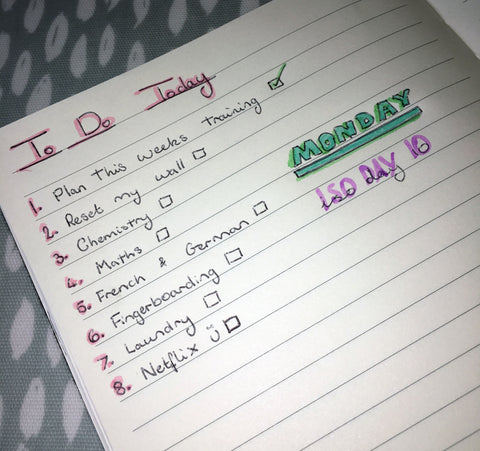 To Do Today
1. Plan this weeks training
2. Reset my wall
3. Chemistry
4. Maths
5. French & German
6. Fingerboarding
7. Laundry
8. Netflix
MONDAY
ISO DAY 10
iso day